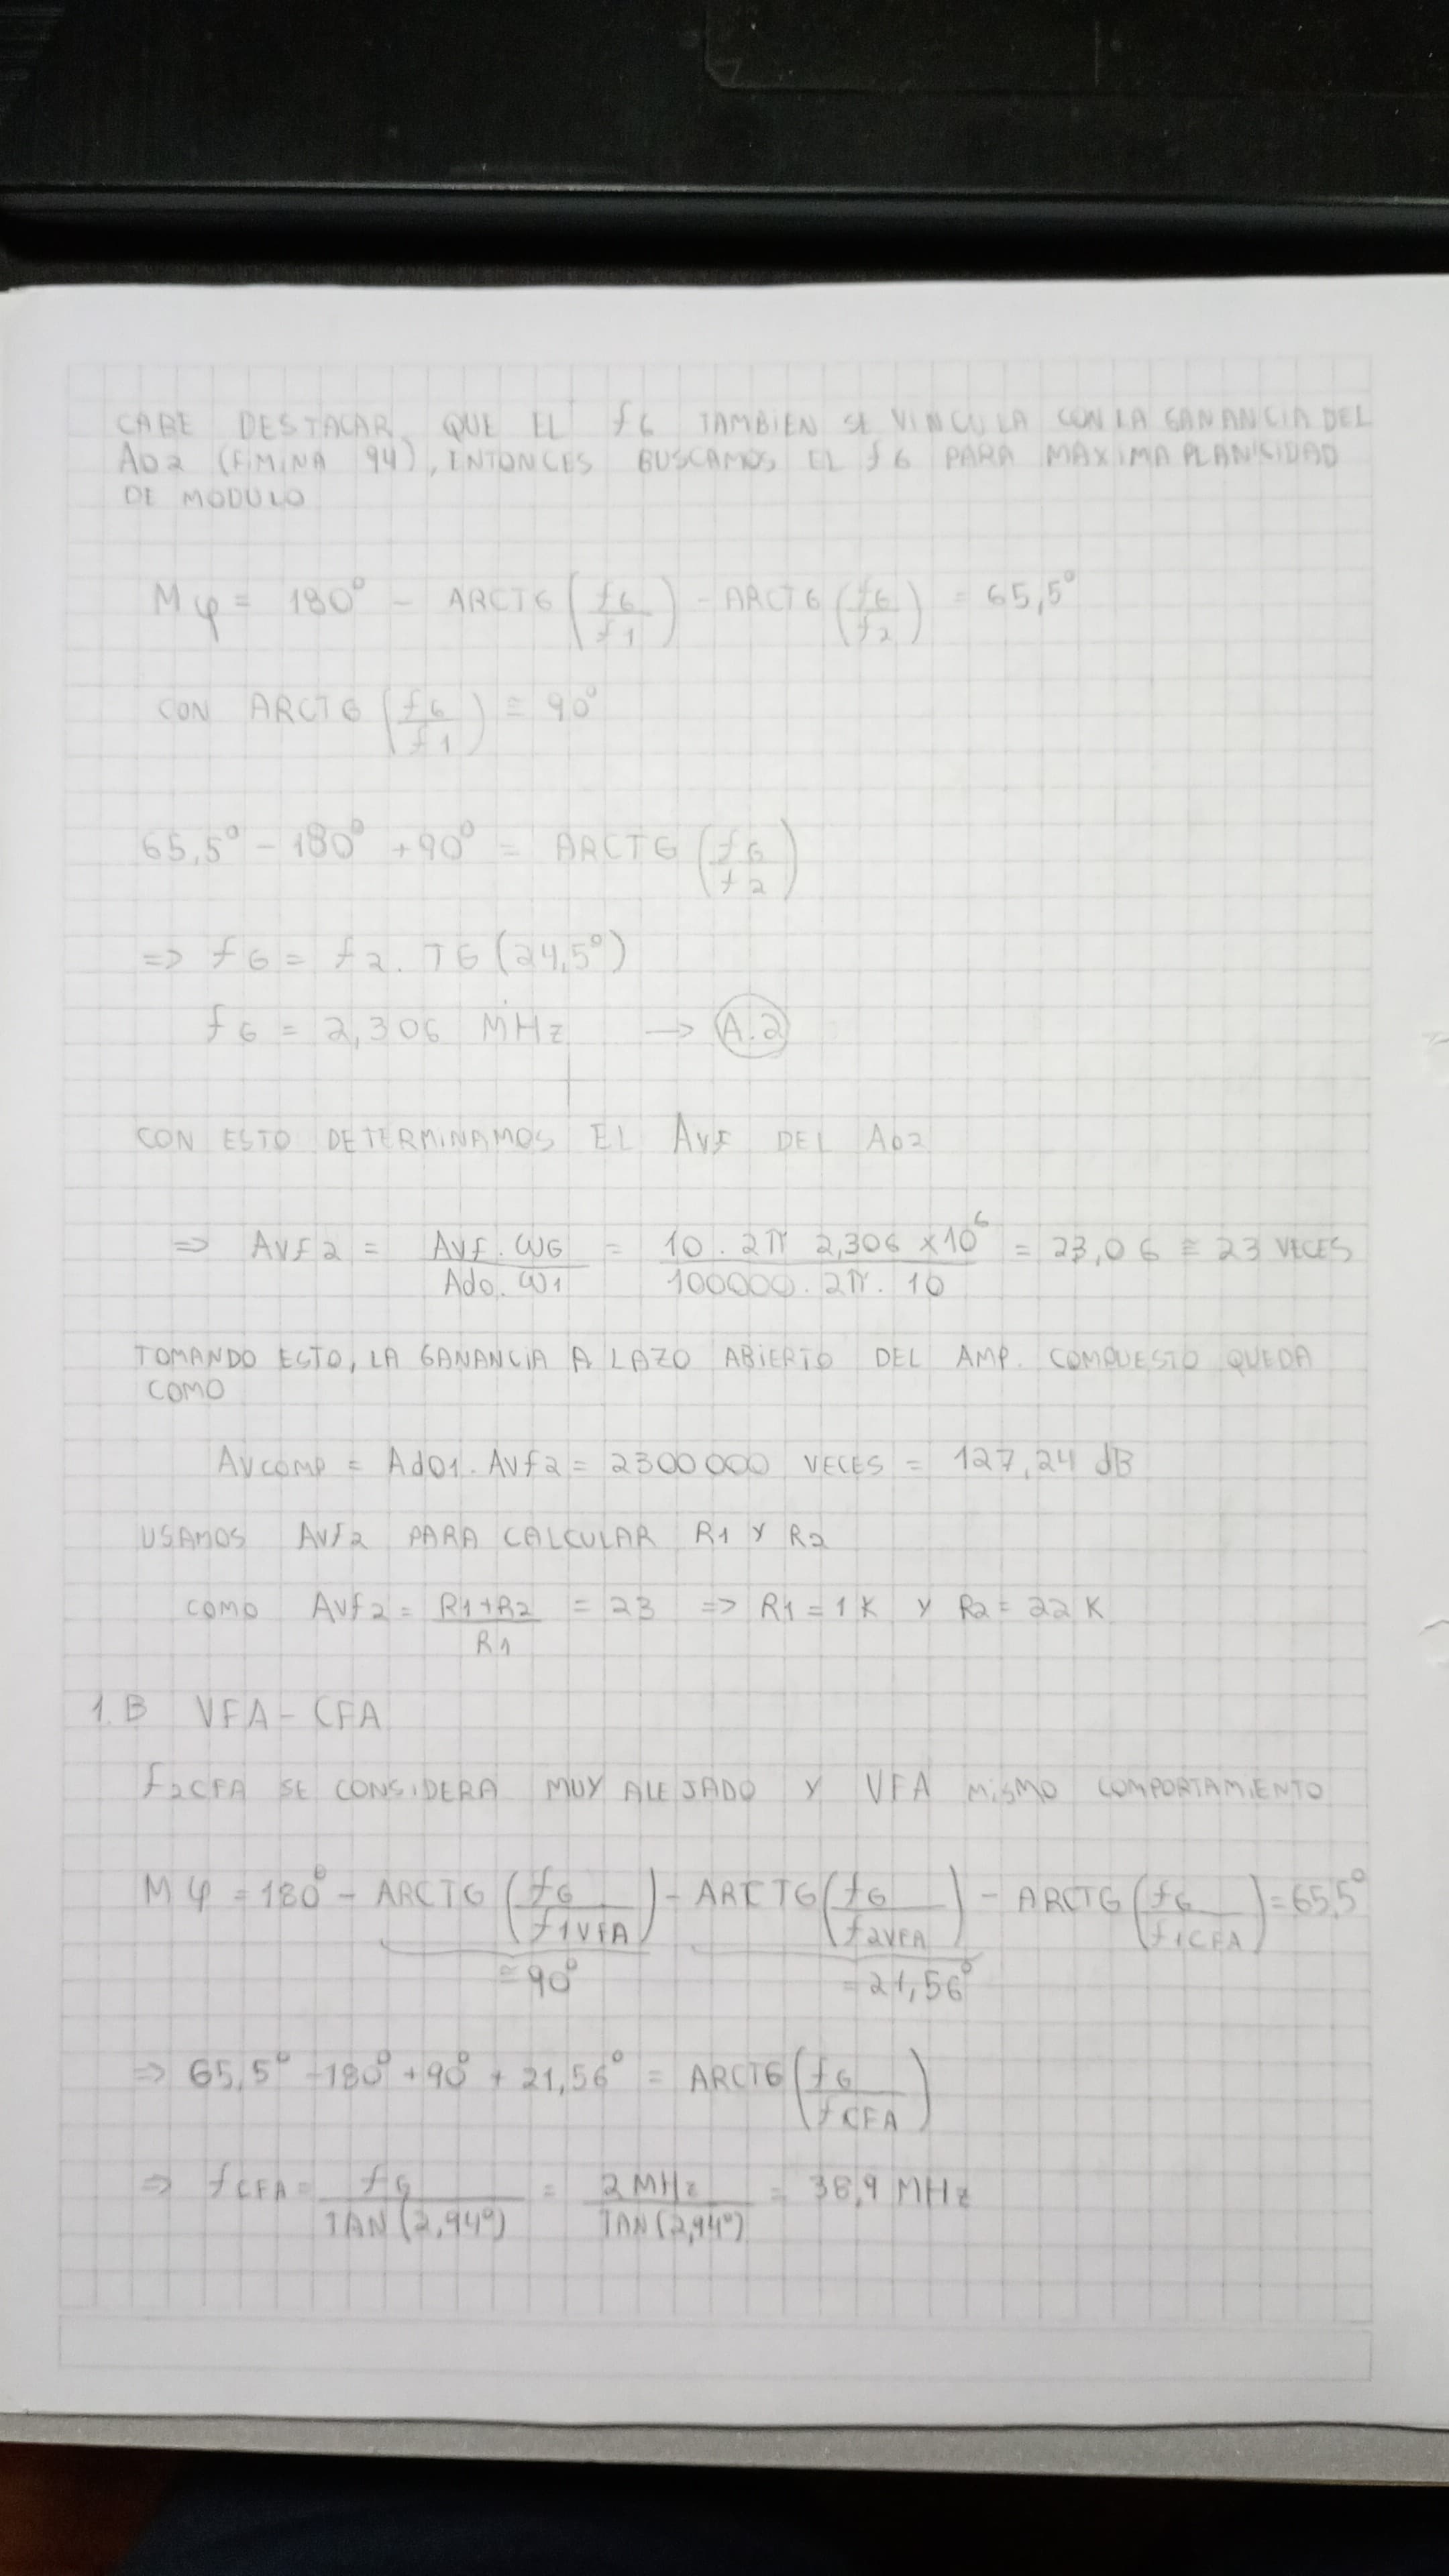 CABE DESTACAR, QUE EL f6 TAMBIEN SE VINCULA CON LA GANANCIA DEL
AO2 (FIMINA 94), ENTONCES BUSCAMOS EL f6 PARA MAXIMA PLANISIDAD
DE MODULO
Mφ = 180° - ARCTG (fG/f1) - ARCTG (fG/f2) = 65,5°
CON ARCTG (fG/f1) ≅ 90°
65,5° - 180° + 90° = ARCTG (fG/f2)
=> fG = f2 . TG (24,5°)
fG = 2,306 MHz → A.2
CON ESTO DETERMINAMOS EL AVF DEL AO2
=> AVf2 = AVf . ωG / Ado . ω1 = 10 . 2π 2,306 x10^6 / 100000 . 2π . 10 = 23,06 ≅ 23 VECES
TOMANDO ESTO, LA GANANCIA A LAZO ABIERTO DEL AMP. COMPUESTO QUEDA
COMO
AVCOMP = AdO1 . AVf2 = 2300000 VECES = 127,24 dB
USAMOS AVf2 PARA CALCULAR R1 Y R2
COMO AVf2 = R1+R2 / R1 = 23 => R1 = 1K Y R2 = 22 K
1.B VFA - CFA
f2CFA SE CONSIDERA MUY ALEJADO Y VFA MISMO COMPORTAMIENTO
Mφ = 180° - ARCTG (fG/f1VFA) - ARCTG (fG/f2VFA) - ARCTG (fG/f1CFA) = 65,5°
≅ 90° = 21,56°
=> 65,5° - 180° + 90° + 21,56° = ARCTG (fG/fCFA)
=> fCFA = fG / TAN (2,94°) = 2 MHz / TAN (2,94°) = 38,9 MHz